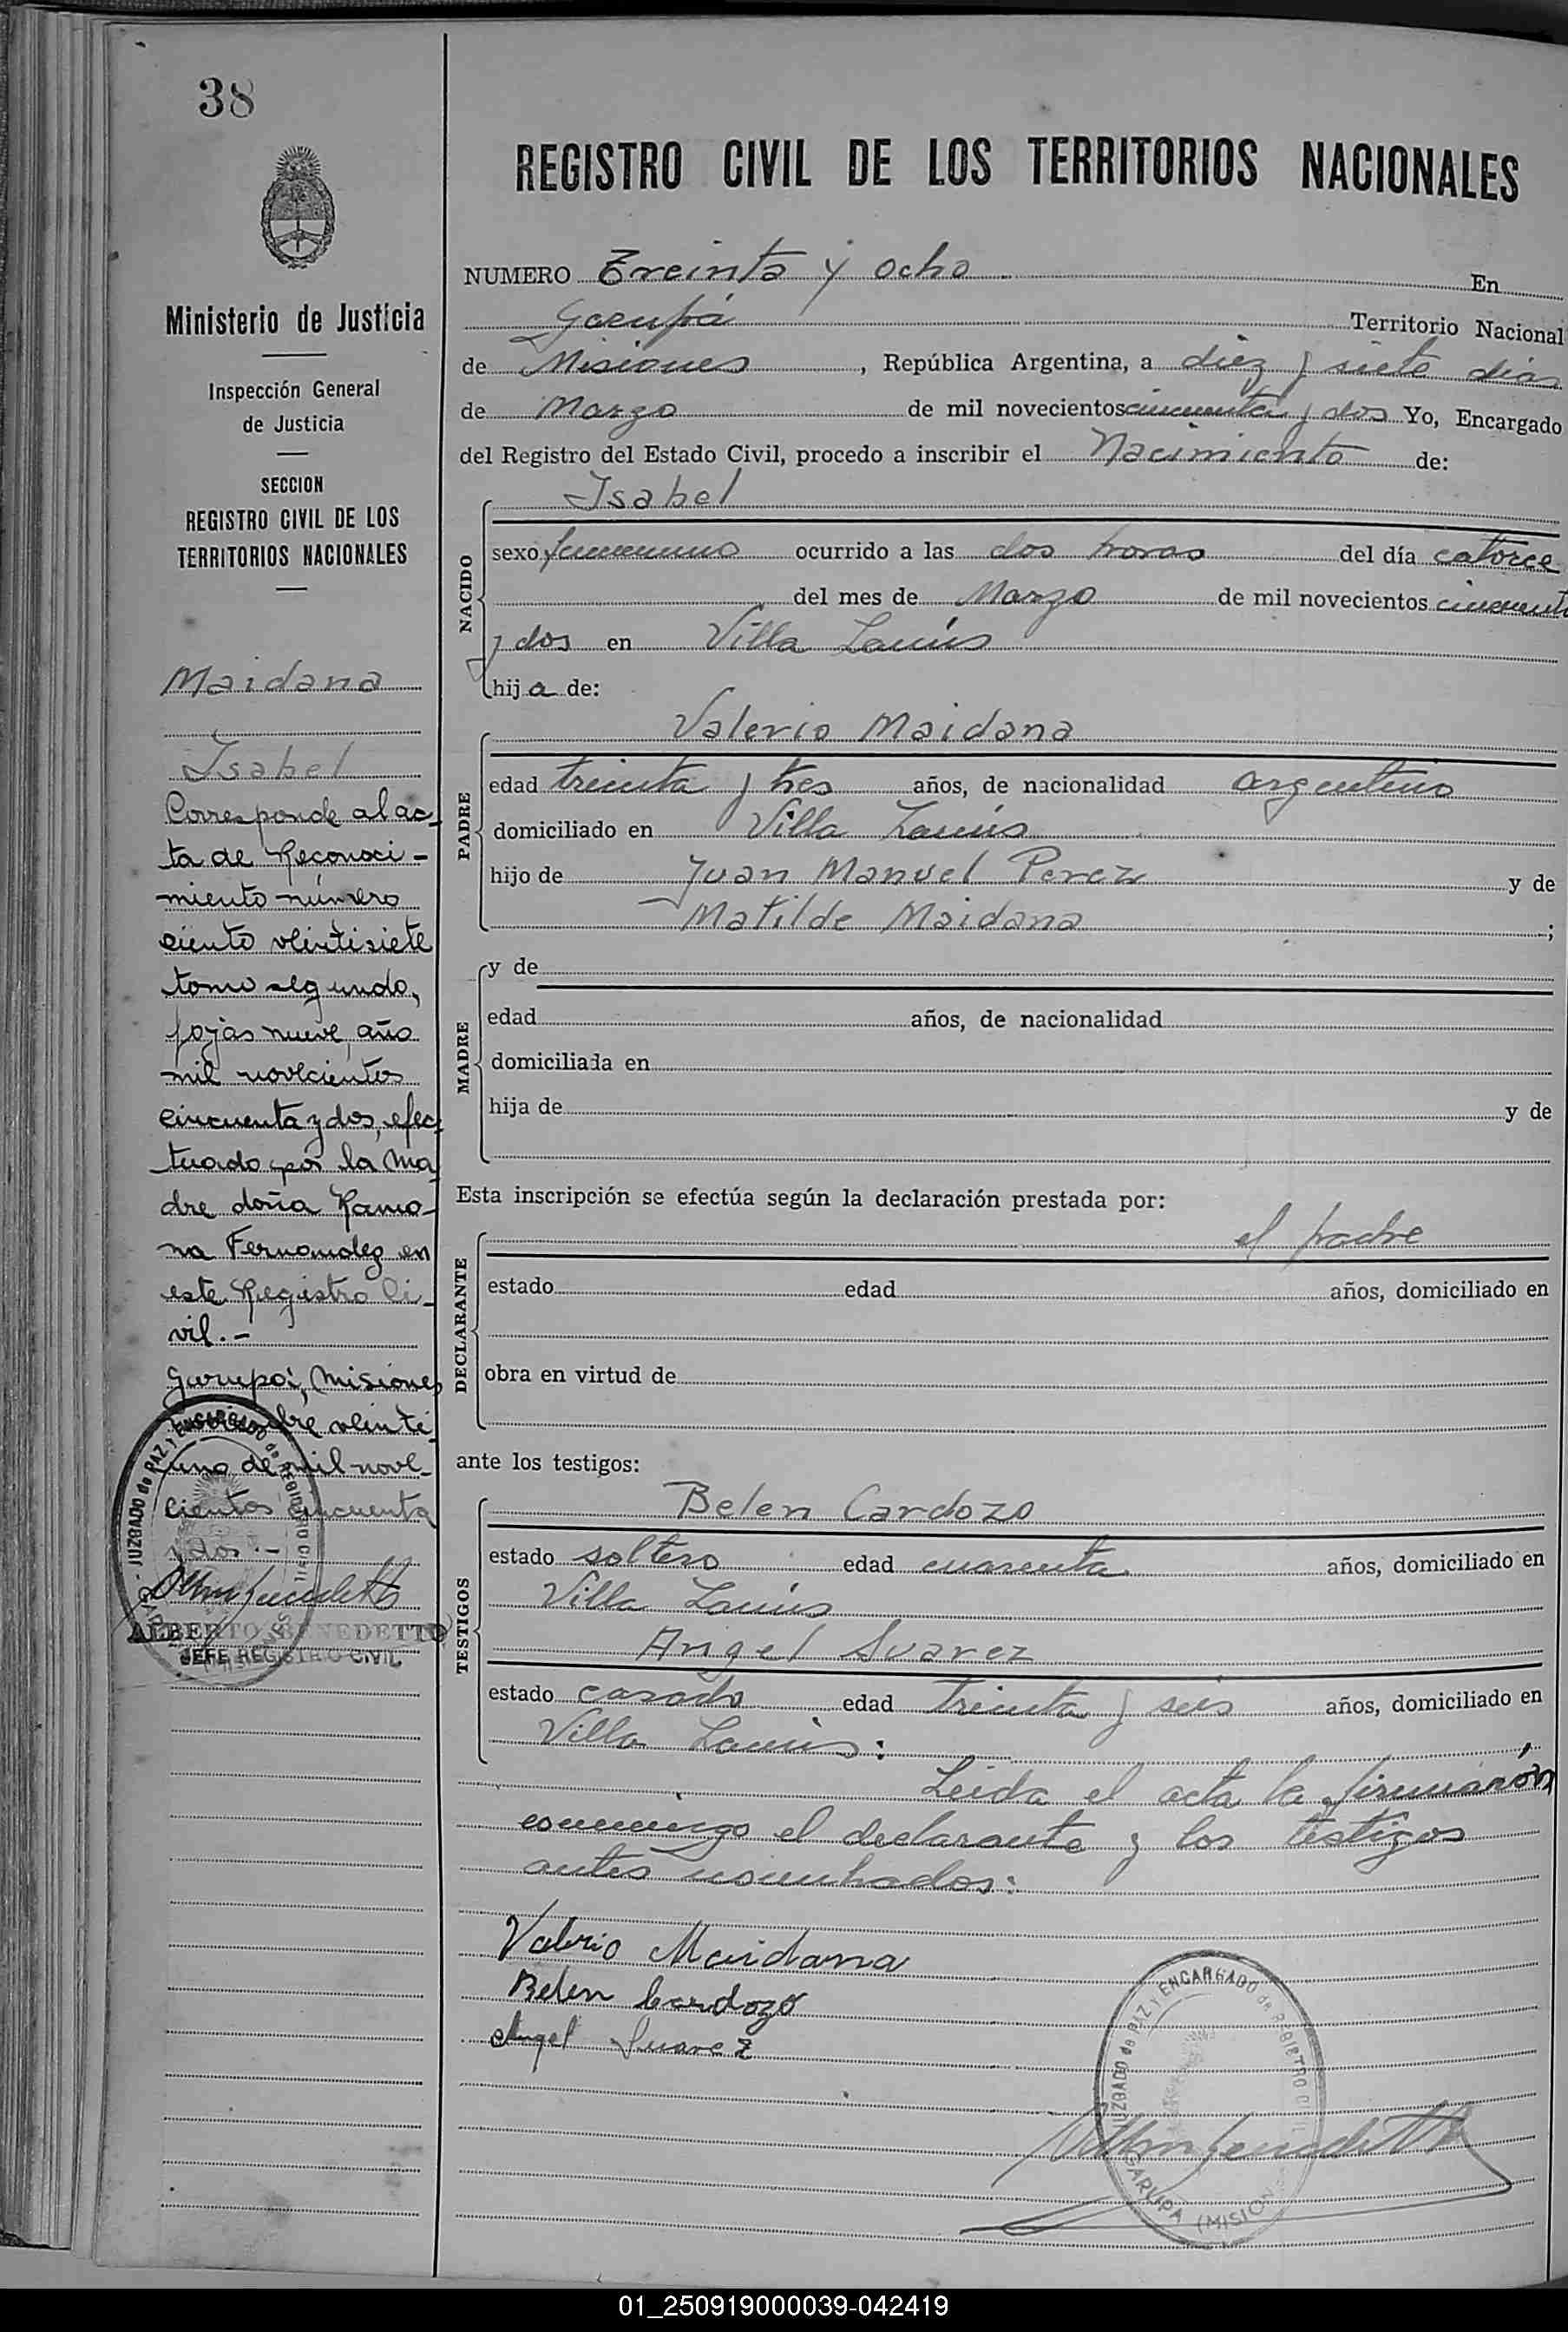 38
Ministerio de Justicia
Inspección General
de Justicia
SECCION
REGISTRO CIVIL DE LOS
TERRITORIOS NACIONALES
Maidana
Isabel
Corresponde al ac-
ta de Reconoci-
miento número
ciento veintisiete
tomo segundo,
fojas nueve, año
mil novecientos
cincuenta y dos, efec-
tuado por la ma-
dre doña Ramo-
na Fernandez en
este Registro Ci-
vil.-
Garupá, Misiones
noviembre veinti-
uno de mil nove-
cientos cincuenta
y dos.-
ALBERTO BENEDETTO
JEFE REGISTRO CIVIL
JUZGADO de PAZ Y ENCARGADO de REGISTRO CIVIL
REGISTRO CIVIL DE LOS TERRITORIOS NACIONALES
NUMERO Treinta y ocho. En
Garupá Territorio Nacional
de Misiones, República Argentina, a diez y siete dias
de Marzo de mil novecientos cincuenta y dos Yo, Encargado
del Registro del Estado Civil, procedo a inscribir el Nacimiento de:
NACIDO
Isabel
sexo femenino ocurrido a las dos horas del día catorce
del mes de Marzo de mil novecientos cincuenta
y dos en Villa Lanús
hija de:
PADRE
Valerio Maidana
edad treinta y tres años, de nacionalidad argentino
domiciliado en Villa Lanús
hijo de Juan Manuel Perez y de
Matilde Maidana ;
MADRE
y de
edad años, de nacionalidad
domiciliada en
hija de y de
Esta inscripción se efectúa según la declaración prestada por:
DECLARANTE
el padre
estado edad años, domiciliado en
obra en virtud de
ante los testigos:
TESTIGOS
Belen Cardozo
estado soltero edad cuarenta años, domiciliado en
Villa Lanús
Angel Suarez
estado casado edad treinta y seis años, domiciliado en
Villa Lanús:
Leida el acta la firmaron
conmigo el declarante y los testigos
antes nombrados:
Valerio Maidana
Belen Cardozo
Angel Suarez
JUZGADO de PAZ Y ENCARGADO de REGISTRO CIVIL
GARUPA (MISIONES)
01_250919000039-042419